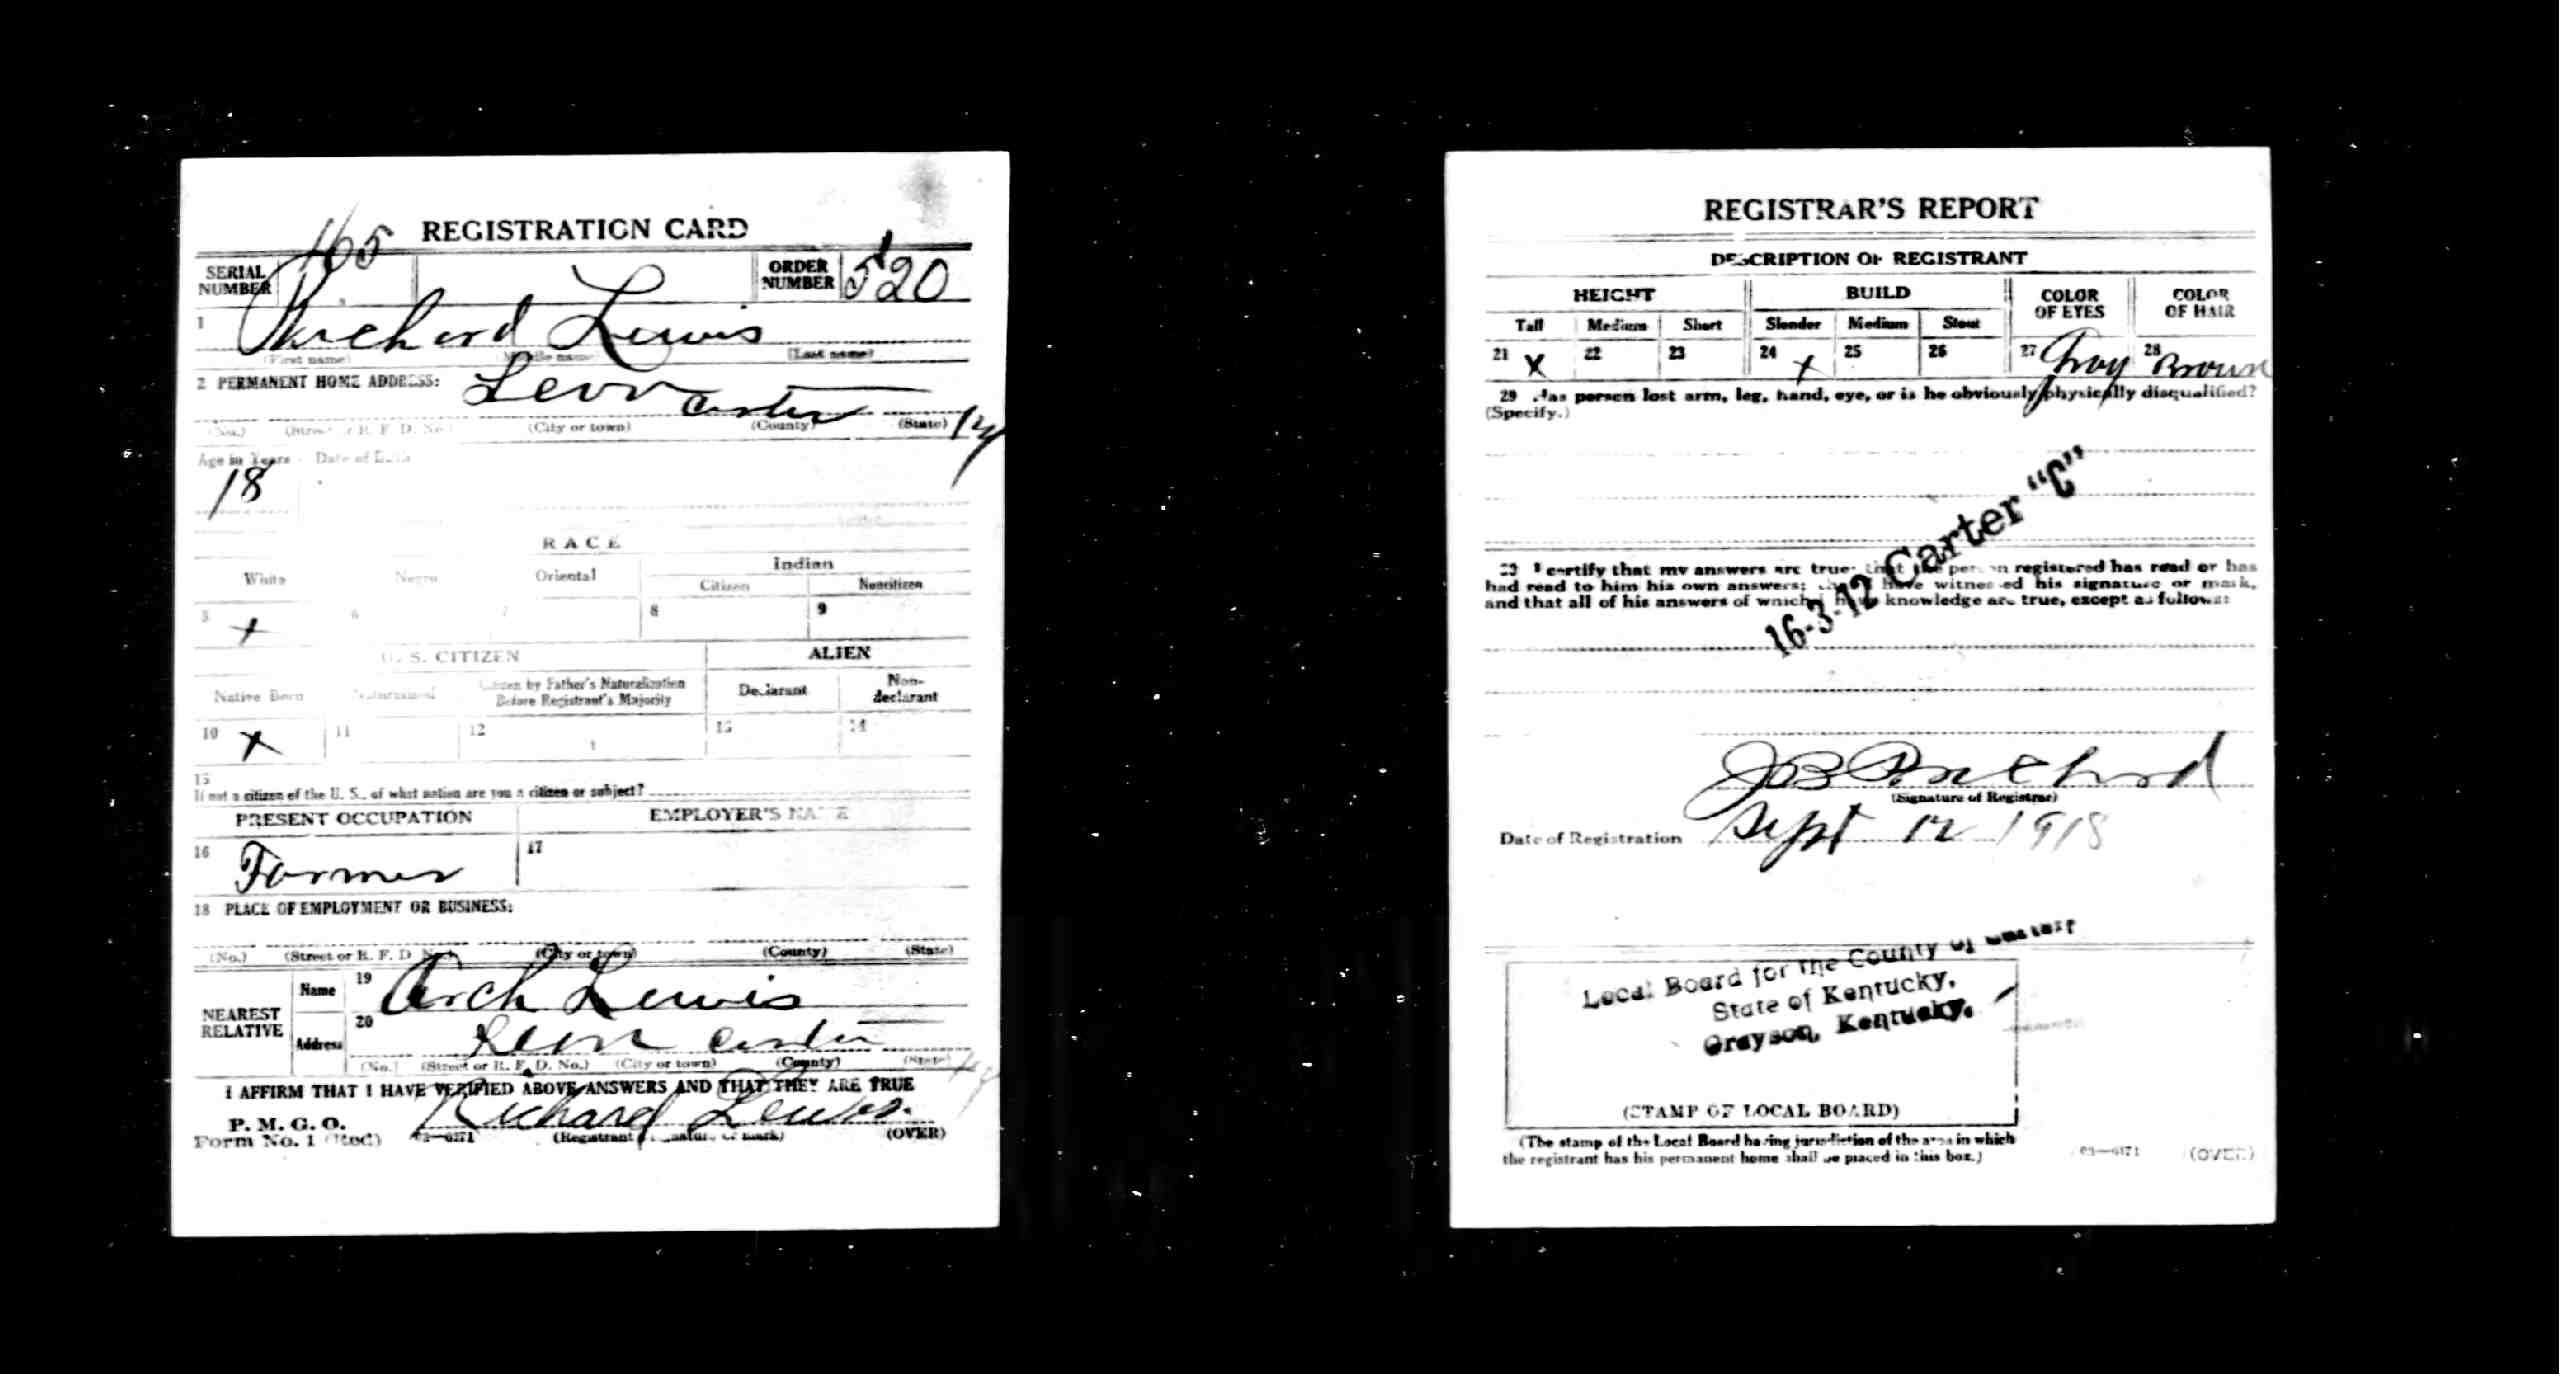 165
REGISTRATION CARD
SERIAL NUMBER
ORDER NUMBER 520
1 Richard Lewis
(First name) (Middle name) (Last name)
2 PERMANENT HOME ADDRESS: Leon Carter Ky
(No.) (Street or R. F. D. No.) (City or town) (County) (State)
Age in Years Date of Birth
18
RACE
White Negro Oriental Indian
Citizen Noncitizen
5 X 6 7 8 9
U. S. CITIZEN ALIEN
Native Born Naturalized Citizen by Father's Naturalization Before Registrant's Majority Declarant Non-declarant
10 X 11 12 13 14
15
If not a citizen of the U. S., of what nation are you a citizen or subject?
PRESENT OCCUPATION EMPLOYER'S NAME
16 Farmer 17
18 PLACE OF EMPLOYMENT OR BUSINESS:
(No.) (Street or R. F. D. No.) (City or town) (County) (State)
NEAREST RELATIVE
Name 19 Arch Lewis
Address 20 Leon Carter Ky
(No.) (Street or R. F. D. No.) (City or town) (County) (State)
I AFFIRM THAT I HAVE VERIFIED ABOVE ANSWERS AND THAT THEY ARE TRUE
P. M. G. O.
Form No. 1 (Red) Richard Lewis.
(Registrant's signature or mark) (OVER)
REGISTRAR'S REPORT
DESCRIPTION OF REGISTRANT
HEIGHT BUILD COLOR OF EYES COLOR OF HAIR
Tall Medium Short Slender Medium Stout
21 X 22 23 24 X 25 26 27 Gray 28 Brown
29 Has person lost arm, leg, hand, eye, or is he obviously physically disqualified?
(Specify.)
16-3-12 Carter "C"
I certify that my answers are true; that the person registered has read or has
had read to him his own answers; that I have witnessed his signature or mark,
and that all of his answers of which I have knowledge are true, except as follows:
(Signature of Registrar)
Date of Registration Sept 12 1918
Local Board for the County of Carter
State of Kentucky,
Grayson, Kentucky.
(STAMP OF LOCAL BOARD)
(The stamp of the Local Board having jurisdiction of the area in which
the registrant has his permanent home shall be placed in this box.)
03—6171 (OVER)